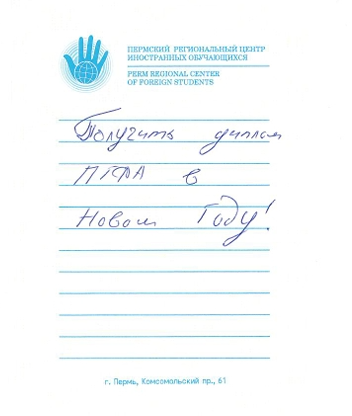 ПЕРМСКИЙ РЕГИОНАЛЬНЫЙ ЦЕНТР
ИНОСТРАННЫХ ОБУЧАЮЩИХСЯ
PERM REGIONAL CENTER
OF FOREIGN STUDENTS
Получить диплом
ПГФА в
Новом Году!
г. Пермь, Комсомольский пр., 61